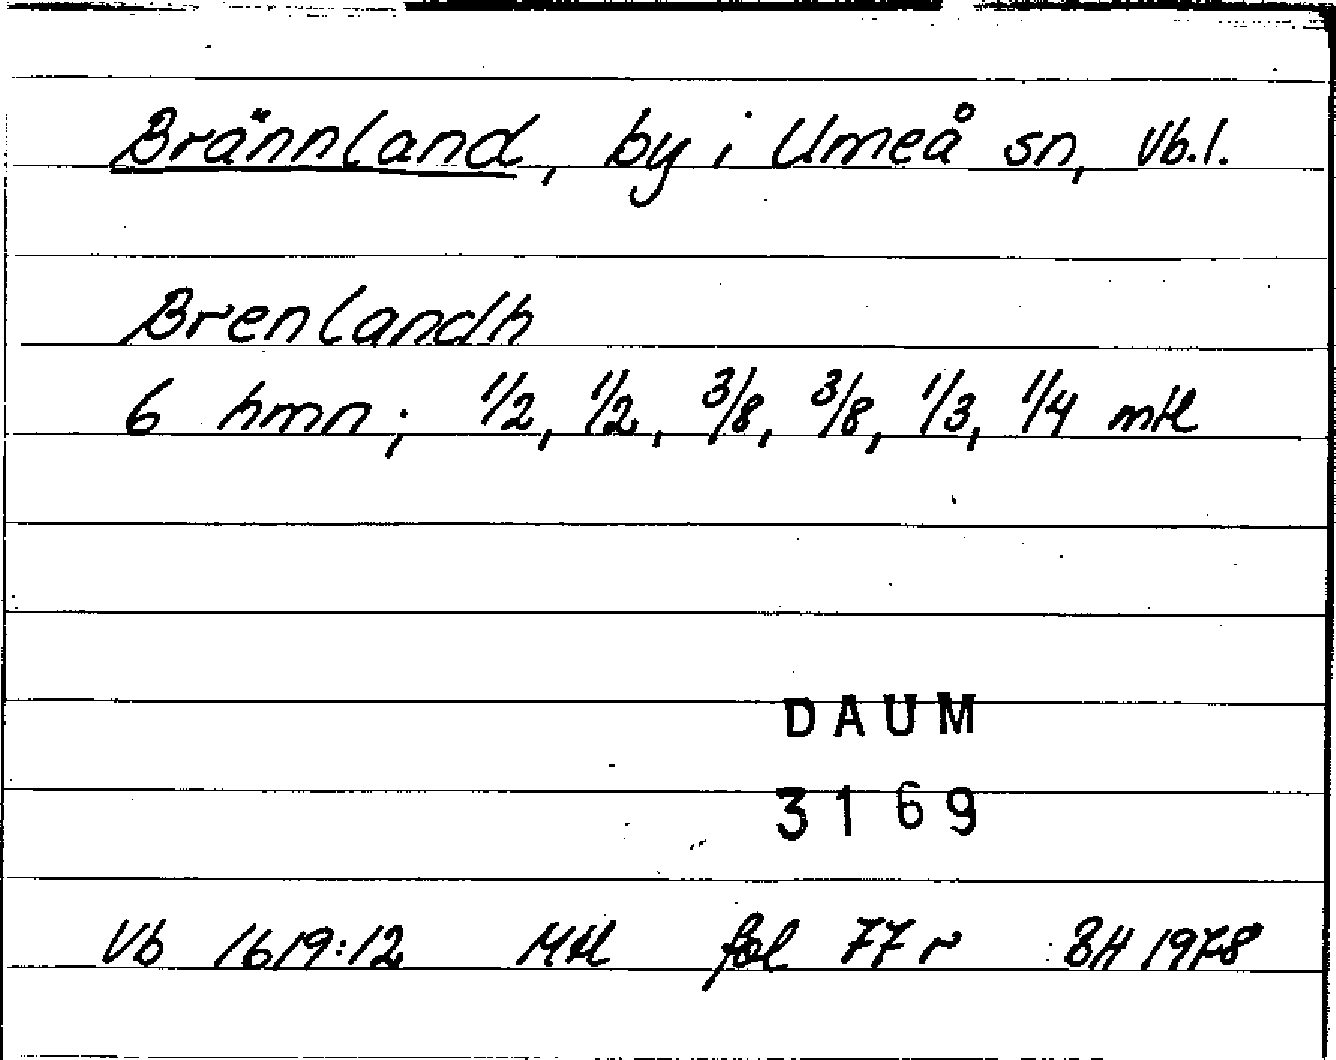 Brännland, by i Umeå sn, Vb.l.
Brenlandh
6 hmn; 1/2, 1/2, 3/8, 3/8, 1/3, 1/4 mtl
DAUM
3169
Vb 1619:12 Mtl fol 77 r BH 1978